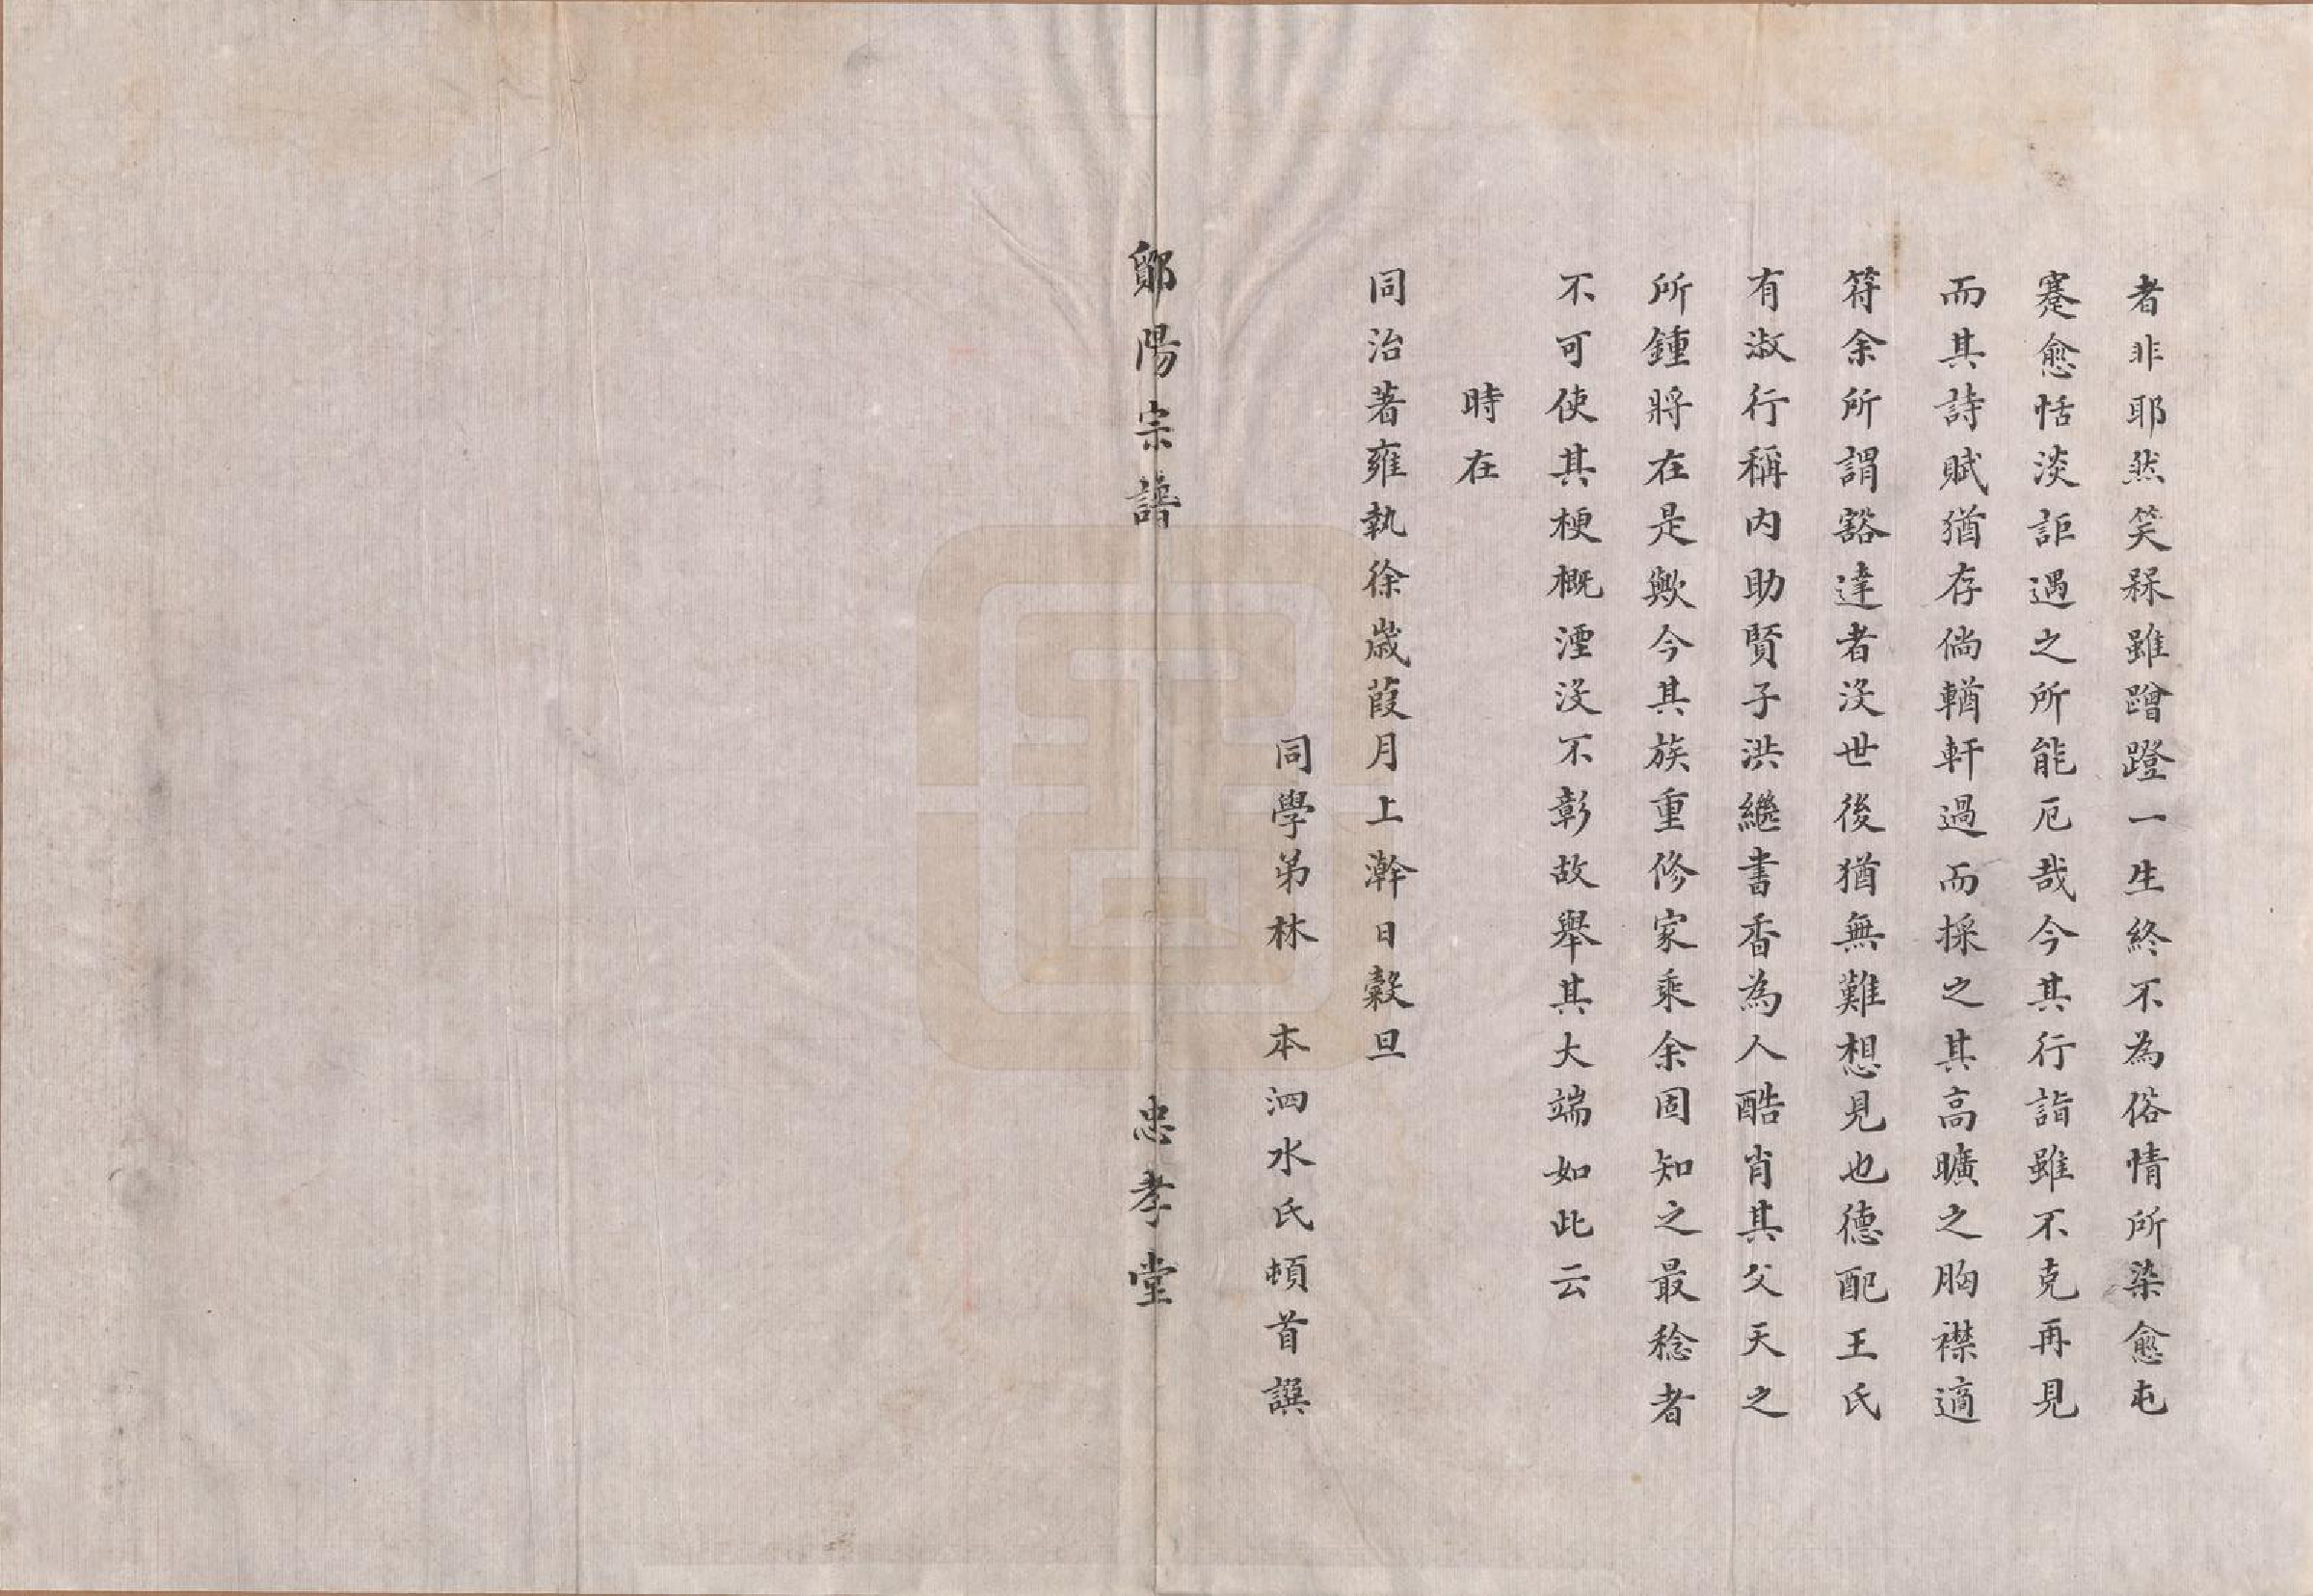 者非耶然笑槑雖蹭蹬一生終不為俗情所染愈屯
蹇愈恬淡詎遇之所能厄哉今其行詣雖不克再見
而其詩賦猶存倘輶軒過而採之其高曠之胸襟適
符余所謂豁達者沒世後猶無難想見也德配王氏
有淑行稱內助賢子洪繼書香為人酷肖其父天之
所鍾將在是歟今其族重修家乘余固知之最稔者
不可使其梗概湮沒不彰故舉其大端如此云
時在
同治著雍執徐歲葭月上澣日穀旦
同學弟林 本泗水氏頓首譔
鄭陽宗譜 忠孝堂